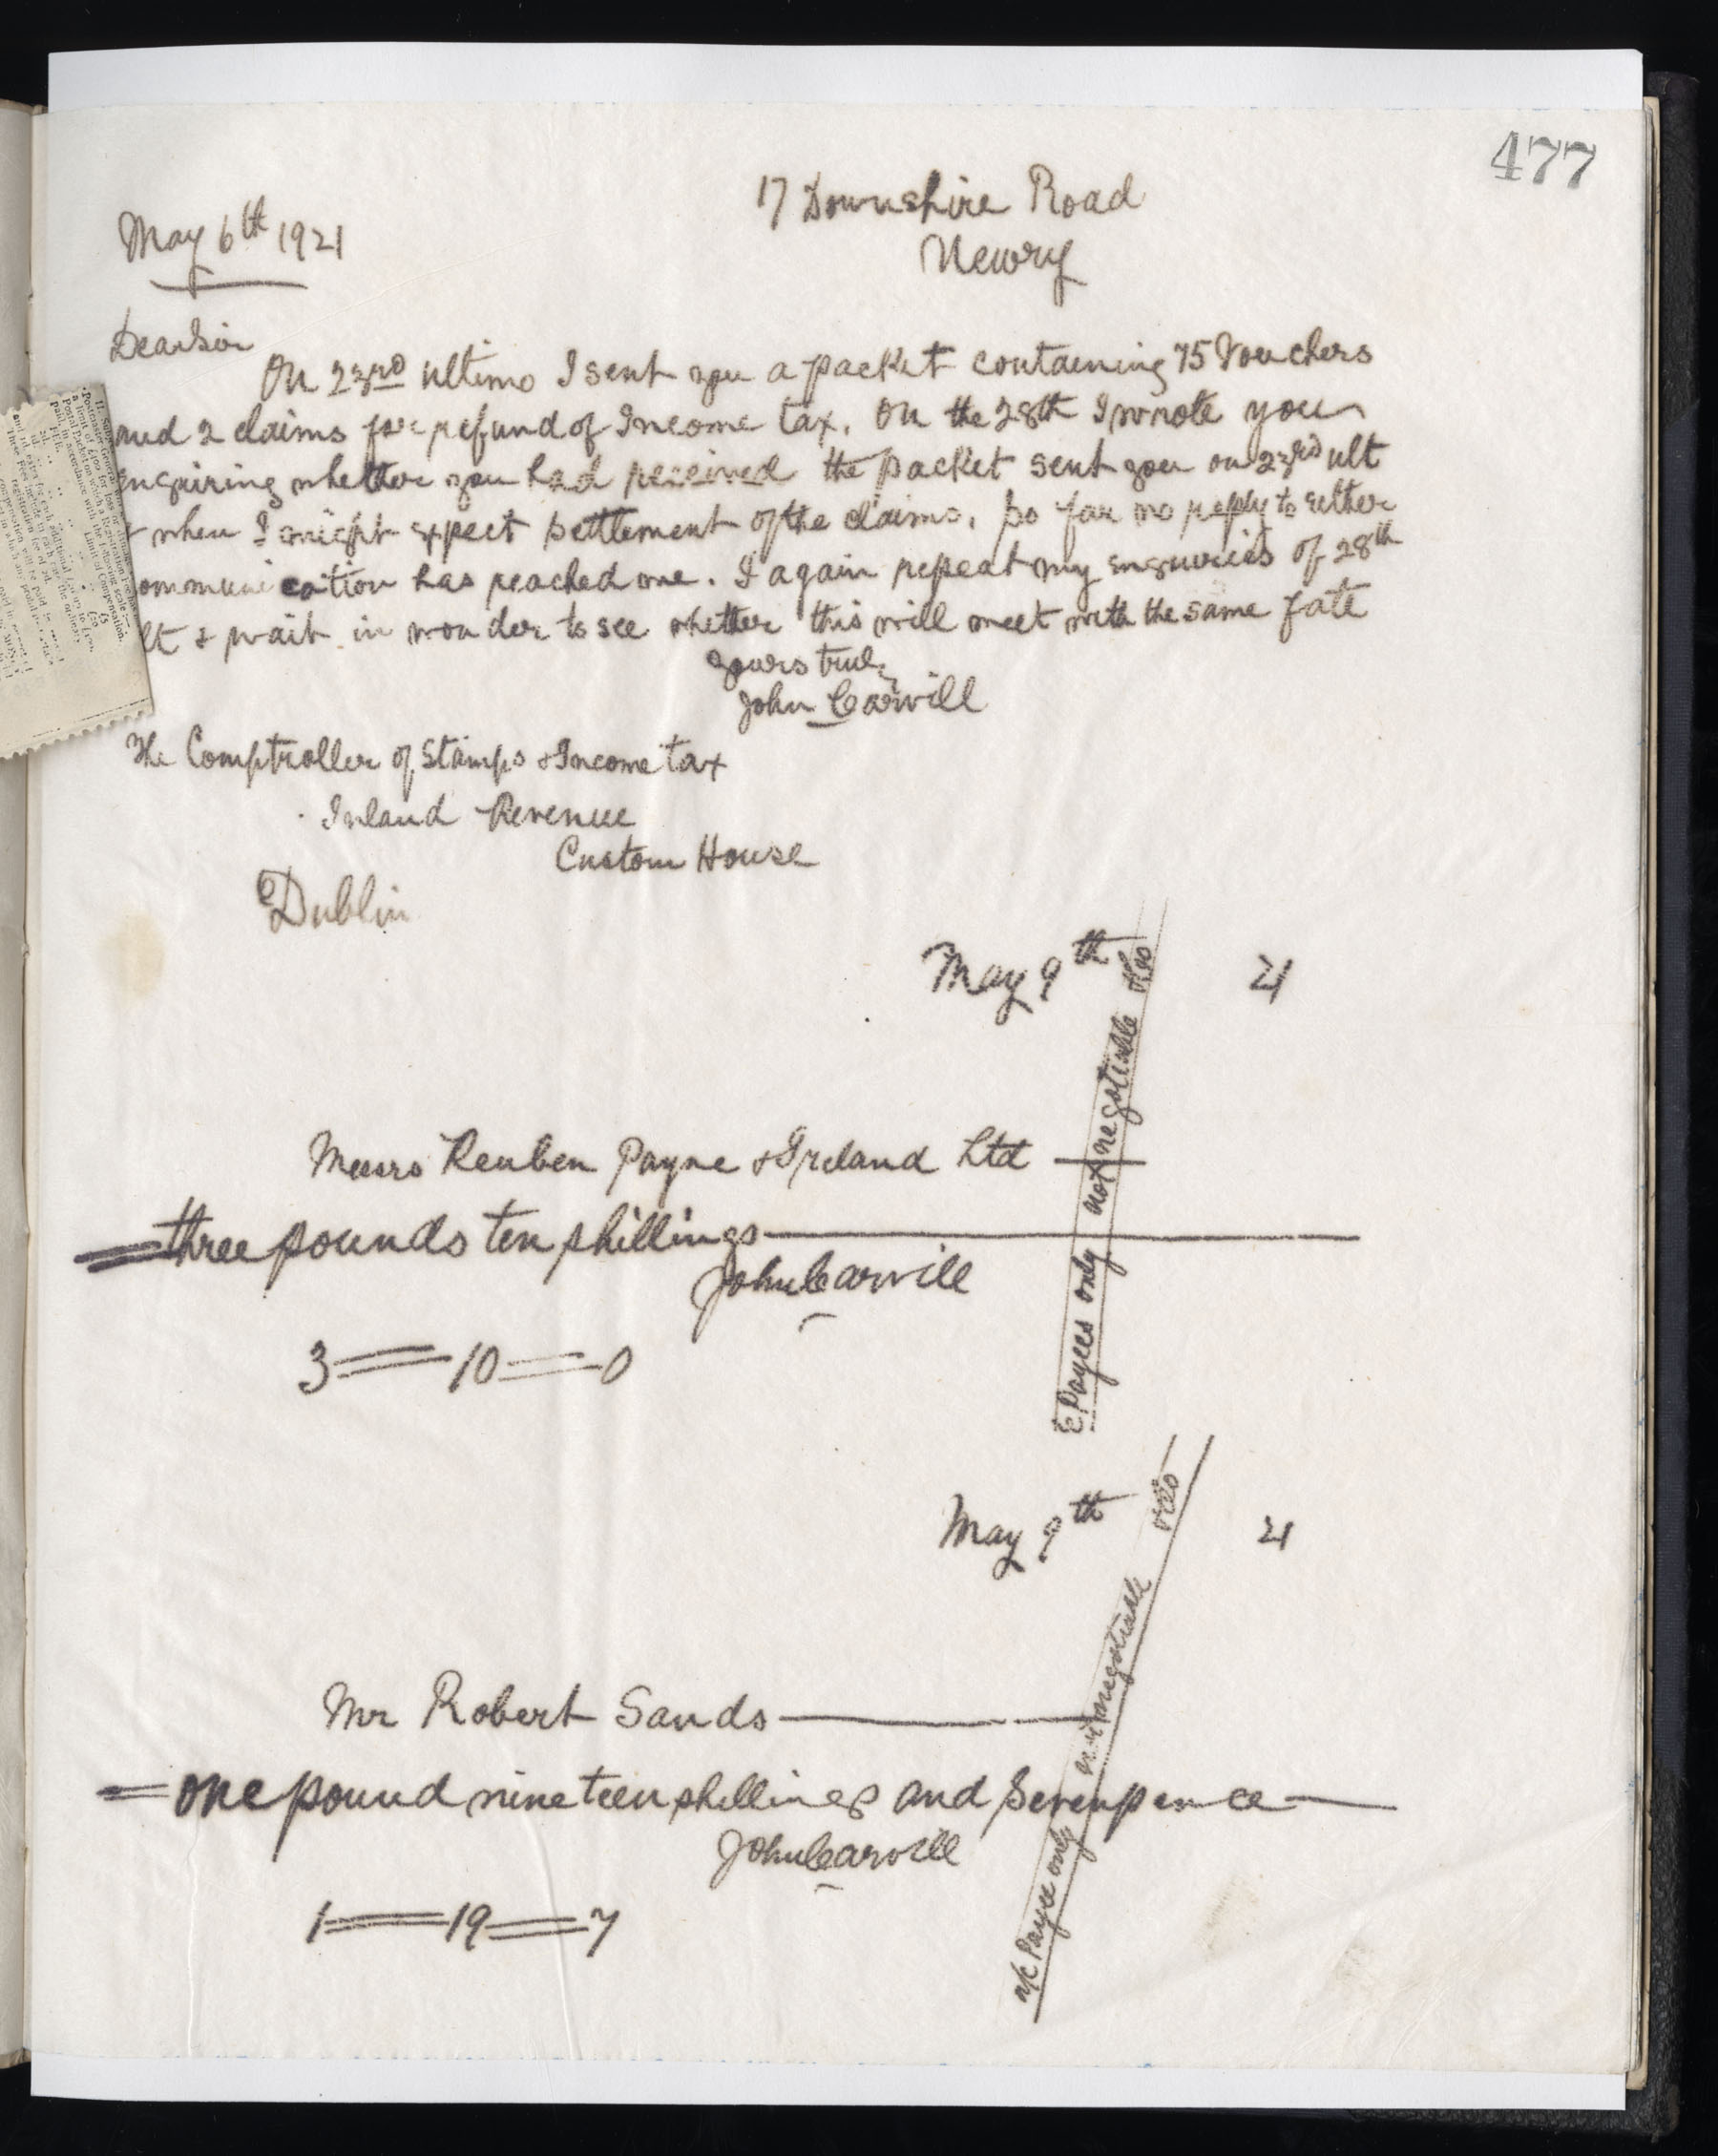 477
17 Downshire Road
May 6th 1921
Newry
Dear Sir
On 23rd ultimo I sent you a packet containing 75 Vouchers
and 2 claims for refund of Income tax. On the 28th I wrote you
enquiring whether you had received the packet sent you on 23rd ult
+ when I might expect settlement of the claims. So far no reply to either
ommunication has reached me. I again repeat my enquiries of 28th
lt & wait in wonder to see whether this will meet with the same fate
yours truly
John Carvill
The Comptroller of Stamps & Income tax
Inland Revenue
Custom House
Dublin
May 9th 21
Messrs Reuben Payne & Ireland Ltd
three pounds ten shillings
John Carvill
3 10 0
Payees only not negotiable &co
May 9th 21
Mr Robert Sands
one pound nineteen shillings and sevenpence
John Carvill
1 19 7
a/c Payee only negotiable &co